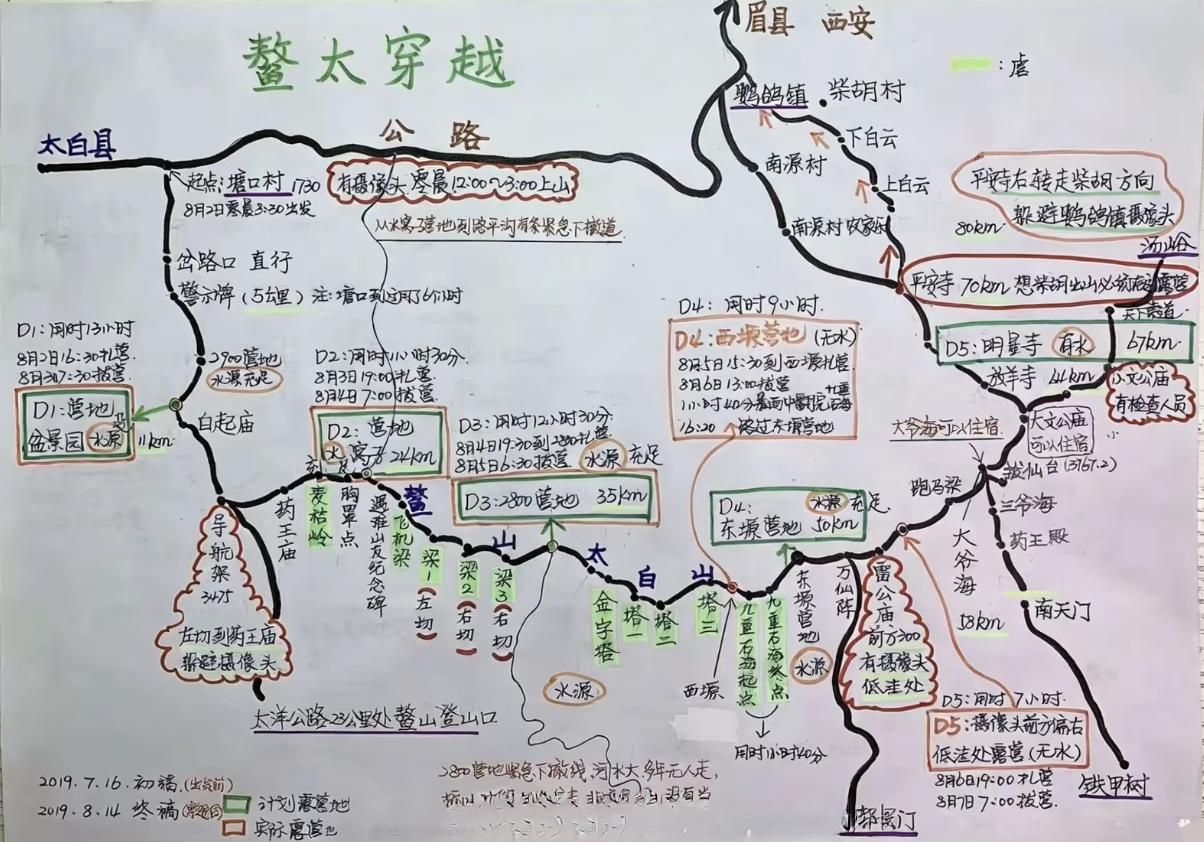 鳌太穿越
眉县 西安
：虐
太白县
公路
鹦鸽镇
柴胡村
下白云
上白云
南源村
南源村农家乐
起点：塘口村 1730
8月2日零晨3:30出发
有摄像头 零晨12:00~3:00上山
从水窝子营地到路平沟有条紧急下撤道
平安寺右转走柴胡方向
躲避鹦鸽镇摄像头
80km
汤峪
岔路口 直行
警示牌（5公里）注：塘口到这用了6小时
平安寺 70km
D5：明星寺 有水 67km
放羊寺 44km
小文公庙
有检查人员
大文公庙
可以住宿
D1：用时13小时
8月2日16:30扎营
8月3日7:30拔营
D1：营地
盆景园 水源
11km
2900营地
水源充足
白起庙
D2：用时11小时30分
8月3日19:00扎营
8月4日7:00拔营
D2：营地
水窝子 24km
D3：用时12小时30分
8月4日19:30到2800扎营
8月5日6:30拔营 水源充足
D3：2800营地 35km
D4：用时9小时
D4：西塬营地（无水）
8月5日15:30到西塬扎营
8月6日13:00拔营
16:20 路过东塬营地
D4： 水源充足
东塬营地 50km
大爷海可以住宿
拔仙台（3767.2）
跑马梁
大爷海
三爷海
药王殿
南天门
58km
铁甲树
鳌山太白山
药王庙
麦秸岭
胸罩点
遇难山友纪念碑
飞机梁
梁1（左切）
梁2（右切）
梁3（右切）
金字塔
塔一
塔二
塔三
西塬
九重石海起点
九重石海终点
用时1小时40分
东塬营地
水源
万仙阵
雷公庙
前方300
有摄像头
低洼处
导航架
3475
左切到药王庙
躲避摄像头
太洋公路23公里处鳌山登山口
水源
D5：用时7小时
D5：摄像头前方偏右
低洼处露营（无水）
8月6日19:00扎营
8月7日7:00拔营
2800营地紧急下撤线，河水大，多年无人走，
都督门
2019.7.16.初稿（出发前）
2019.8.14 终稿
计划露营地
实际露营地